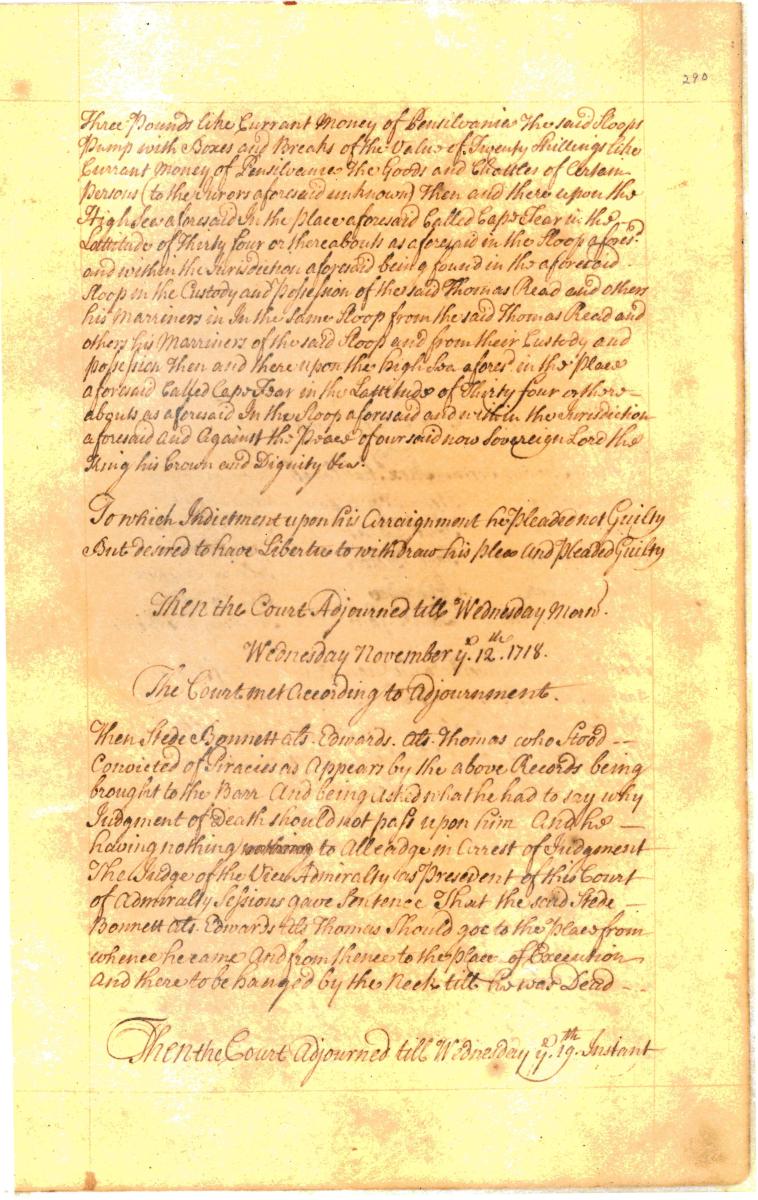 290
Three Pounds like Currant Money of Pensilvania The said Sloops
Pump with Boxes and Breaks of the Value of Twenty Shillings like
Currant Money of Pensilvania The Goods and Chattles of Certain
Persons (to the Jurors aforesaid unknown) Then and there upon the
High Sea aforesaid In the place aforesaid Called Cape Fear in the
Lattitude of Thirty four or thereabouts as aforesaid in the Sloop afores.d
and within the Jurisdiction aforesaid being found in the aforesaid
Sloop in the Custody and Possession of the said Thomas Read and others
his Marriners in In the Same Sloop from the said Thomas Read and
others his Marriners of the said Sloop and from their Custody and
possession Then and there upon the high Sea afores.d in the place
aforesaid Called Cape Fear in the Lattitude of Thirty four or there-
abouts as aforesaid In the Sloop aforesaid and within the Jurisdiction
aforesaid And Against the Peace of our said now Sovereign Lord the
King his Crown and Dignity &ca.
To which Indictment upon his Arraignment he Pleaded not Guilty
But desired to have Liberty to withdraw his plea And pleaded Guilty
Then the Court Adjourned till Wednesday Morn.
Wednesday November ye. 12.th 1718.
The Court met according to Adjournment.
Then Stede Bonnett als. Edwards. als. Thomas who Stood --
Convicted of Piracies as Appears by the above Records being
brought to the Barr And being asked what he had to say why
Judgment of Death should not pass upon him And he —
having nothing nothing to Alleadge in Arrest of Judgment
The Judge of the Vice Admiralty as President of this Court
of Admiralty Sessions gave Sentence That the said Stede —
Bonnett als. Edwards als Thomas Should goe to the Place from
whence he came And from thence to the place of Execution
And there to be hanged by the Neck till he was Dead --
Then the Court Adjourned till Wednesday ye. 19.th Instant